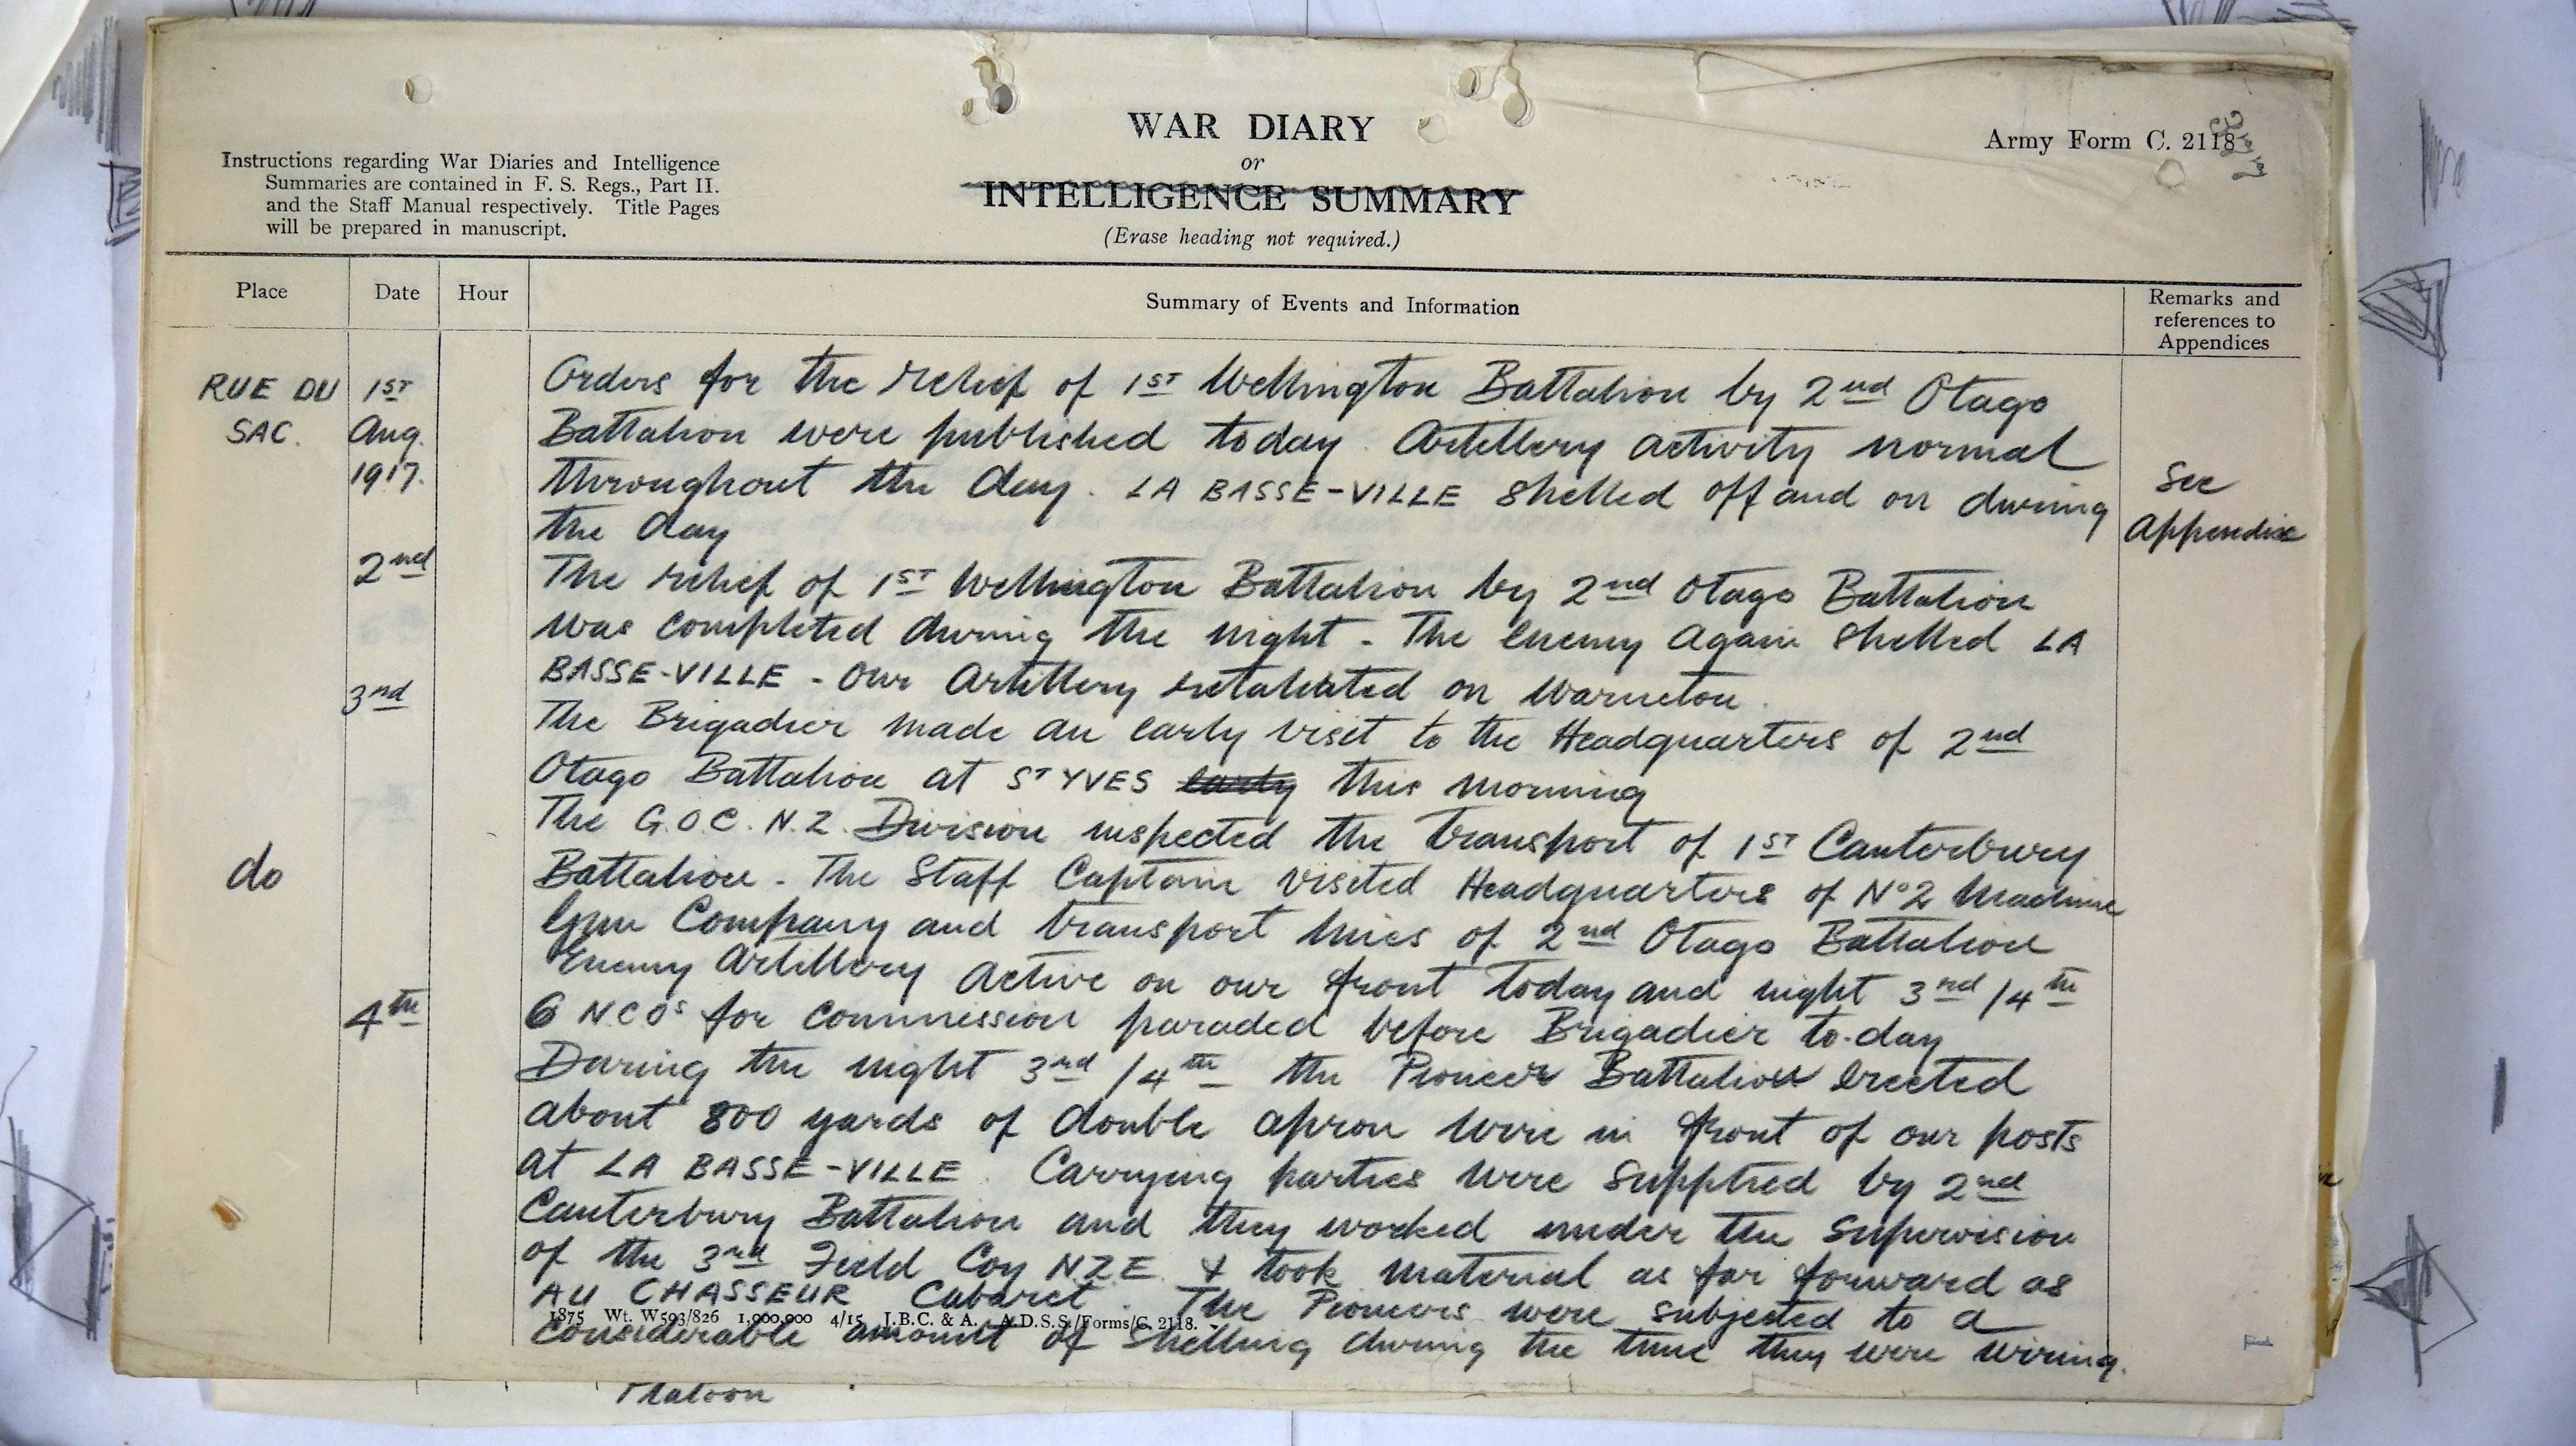 WAR DIARY
or
INTELLIGENCE SUMMARY
(Erase heading not required.)
Army Form C. 2118
Instructions regarding War Diaries and Intelligence
Summaries are contained in F. S. Regs., Part II.
and the Staff Manual respectively. Title Pages
will be prepared in manuscript.
Place Date Hour Summary of Events and Information Remarks and references to Appendices
RUE DU 1ST Orders for the relief of 1ST Wellington Battalion by 2nd Otago
SAC. Aug. Battalion were published today. Artillery activity normal
1917. throughout the day. LA BASSE-VILLE shelled off and on during See
the day Appendix
2nd The relief of 1ST Wellington Battalion by 2nd Otago Battalion
was completed during the night - The enemy again shelled LA
BASSE-VILLE - Our Artillery retaliated on Warneton.
3rd The Brigadier made an early visit to the Headquarters of 2nd
Otago Battalion at ST YVES early this morning
The G.O.C. N.Z. Division inspected the transport of 1ST Canterbury
do Battalion - The Staff Captain visited Headquarters of No 2 Machine
Gun Company and transport lines of 2nd Otago Battalion
Enemy Artillery active on our front today and night 3rd/4th
4th 6 NCOs for commission paraded before Brigadier to-day
During the night 3rd/4th the Pioneer Battalion erected
about 800 yards of double apron wire in front of our posts
at LA BASSE-VILLE. Carrying parties were supplied by 2nd
Canterbury Battalion and they worked under the supervision
of the 3rd Field Coy NZE & took material as far forward as
AU CHASSEUR Cabaret. The Pioneers were subjected to a
1875 Wt. W593/826 1,000,000 4/15 J.B.C. & A. A.D.S.S./Forms/C. 2118.
considerable amount of shelling during the time they were wiring.
Platoon